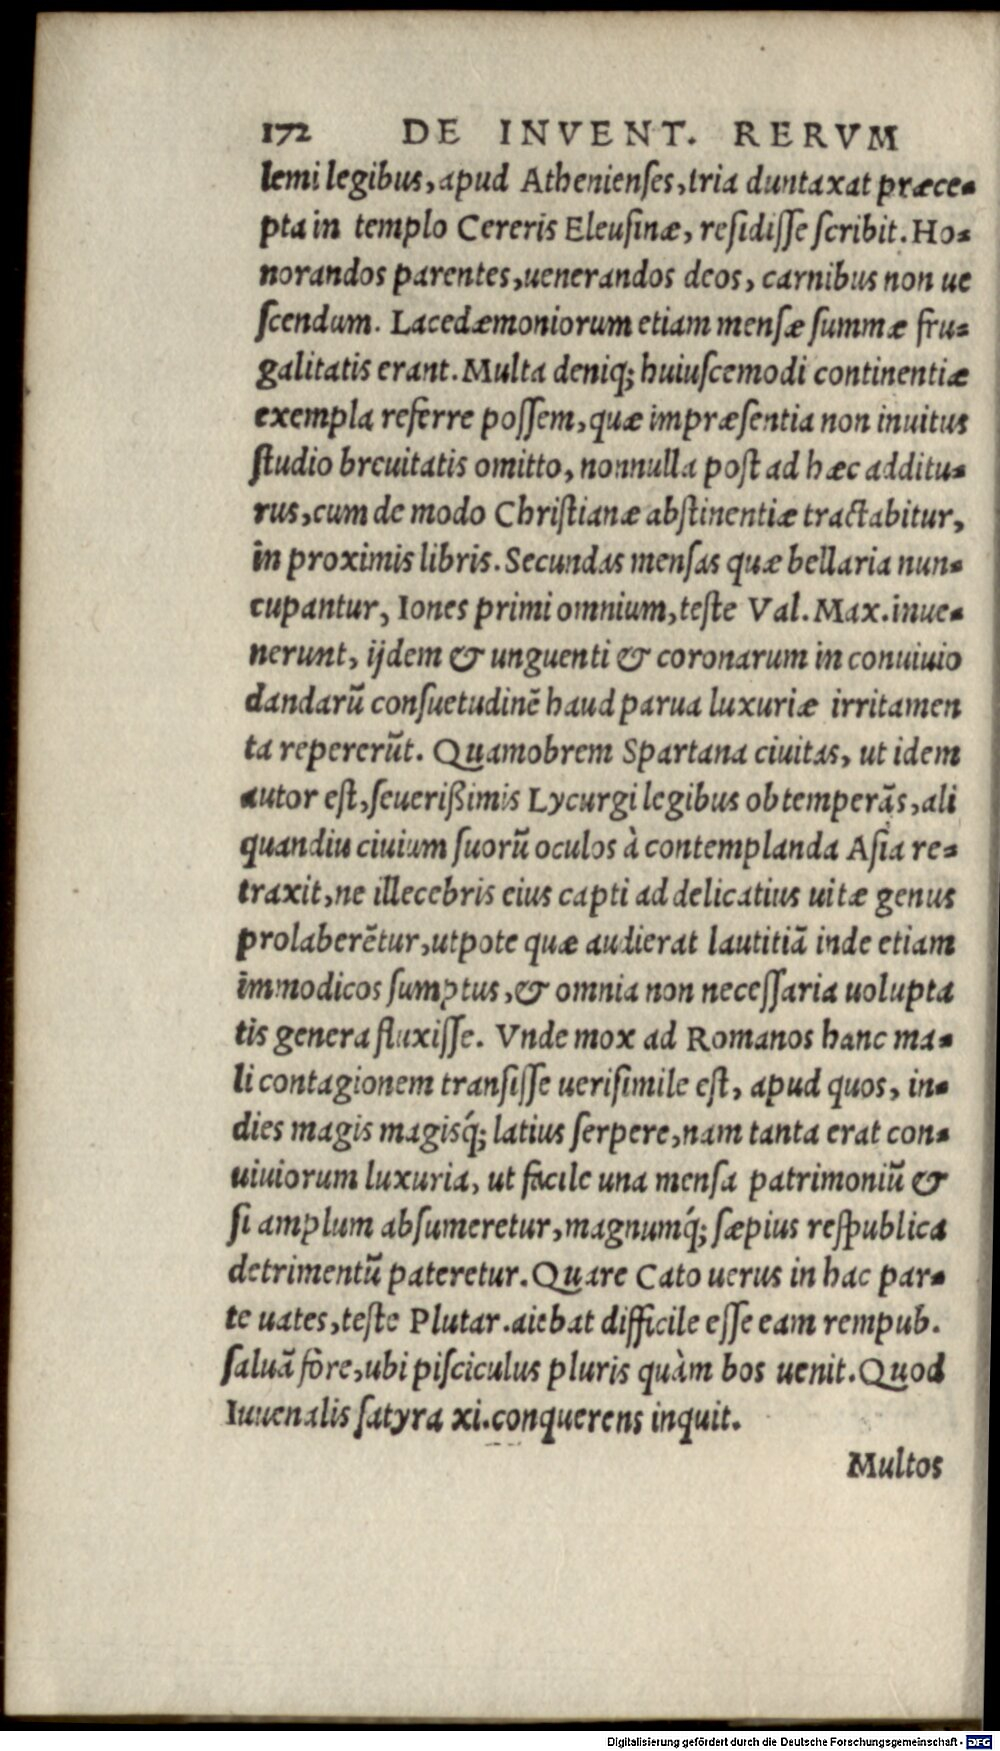 172 DE INVENT. RERVM
lemi legibus, apud Athenienses, tria duntaxat præce-
pta in templo Cereris Eleusinæ, residisse scribit. Ho-
norandos parentes, uenerandos deos, carnibus non ue
scendum. Lacedæmoniorum etiam mensæ summæ fru-
galitatis erant. Multa deniq; huiuscemodi continentiæ
exempla referre possem, quæ impræsentia non inuitus
studio breuitatis omitto, nonnulla post ad hæc additu-
rus, cum de modo Christianæ abstinentiæ tractabitur,
in proximis libris. Secundas mensas quæ bellaria nun-
cupantur, Iones primi omnium, teste Val. Max. inue-
nerunt, ijdem & unguenti & coronarum in conuiuio
dandarū consuetudinē haud parua luxuriæ irritamen
ta repererūt. Quamobrem Spartana ciuitas, ut idem
autor est, seuerißimis Lycurgi legibus obtemperās, ali
quandiu ciuium suorū oculos à contemplanda Asia re-
traxit, ne illecebris eius capti ad delicatius uitæ genus
prolaberētur, utpote quæ audierat lautitiā inde etiam
immodicos sumptus, & omnia non necessaria uolupta
tis genera fluxisse. Vnde mox ad Romanos hanc ma-
li contagionem transisse uerisimile est, apud quos, in-
dies magis magisq́; latius serpere, nam tanta erat con-
uiuiorum luxuria, ut facile una mensa patrimoniū &
si amplum absumeretur, magnumq́; sæpius respublica
detrimentū pateretur. Quare Cato uerus in hac par-
te uates, teste Plutar. aiebat difficile esse eam rempub.
saluā fore, ubi pisciculus pluris quàm bos uenit. Quod
Iuuenalis satyra xi. conquerens inquit.
Multos
Digitalisierung gefördert durch die Deutsche Forschungsgemeinschaft - DFG